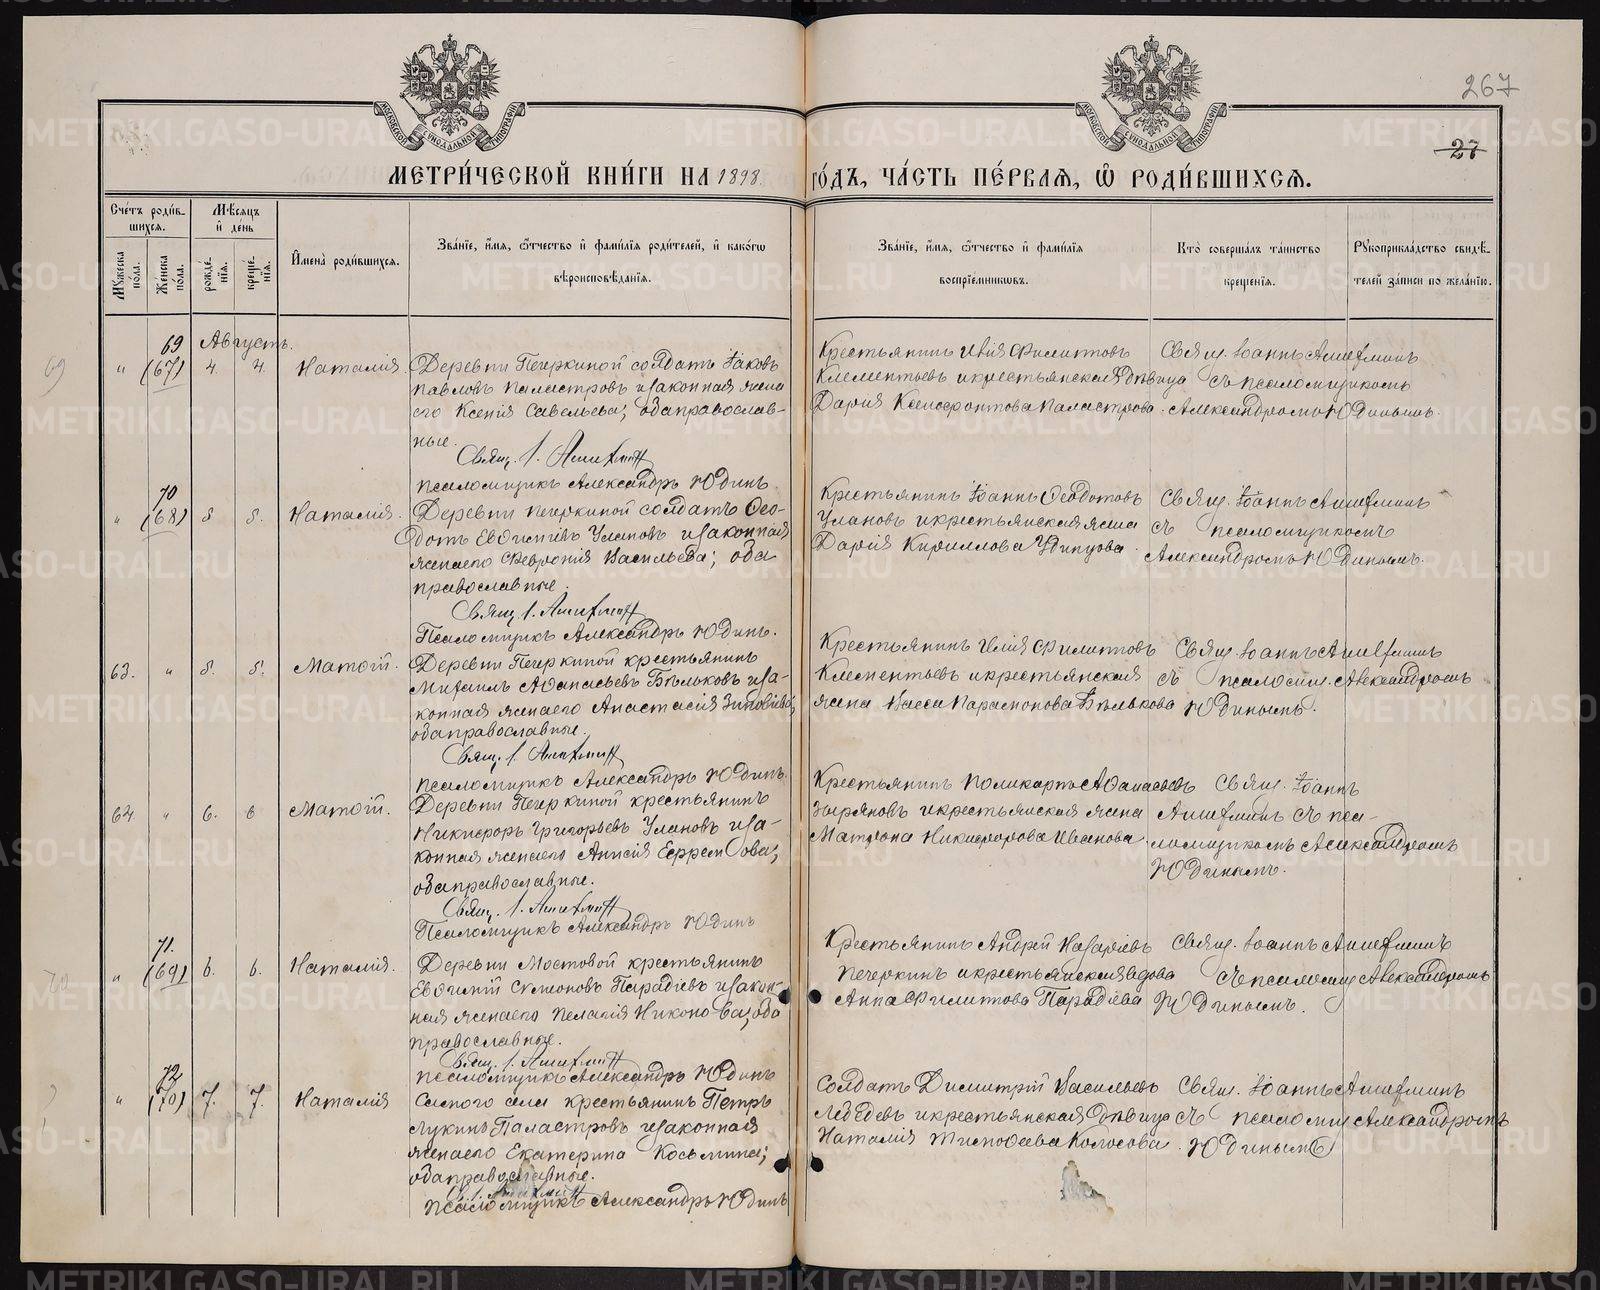 267
27
МЕТРИ́ЧЕСКОЙ КНИ́ГИ НА 1898 ГО́ДЪ, ЧА́СТЬ ПЕ́РВАЯ, Ѡ РОДИ́ВШИХСЯ.
МОСКОВСКОЙ СѴНОДАЛЬНОЙ ТИПОГРАФІИ
МОСКОВСКОЙ СѴНОДАЛЬНОЙ ТИПОГРАФІИ
Сче́тъ роди́вшихся.
Мꙋжеска пола.
Же́нска по́ла.
Мѣ́сяцъ и҆ де́нь
рожде́нїя.
креще́нїя.
И҆мена̀ роди́вшихся.
Зва́нїе, и҆́мя, ѻ҆́тчество и҆ фами́лїя роди́телей, и҆ како́гѡ
вѣроисповѣ́данїя.
Зва́нїе, и҆́мя, ѻ҆́тчество и҆ фами́лїя
воспрїе́мникѡвъ.
Кто̀ соверша́лъ та́инство
креще́нїя.
Рꙋкоприкла́дство свидѣ́телей за́писи по жела́нїю.
Августъ.
69
(67) 4. 4. Наталія
Деревни Печеркиной солдатъ Іаковъ
Павловъ Паластровъ и законная жена
его Ксенія Савельева; оба православ-
ные.
Свящ. І.
Псаломщикъ Александръ Юдинъ.
Крестьянинъ Илія Филипповъ
Клементьевъ и крестьянская дѣвица
Дарія Ксенофонтова Паластрова.
Свящ. Іоаннъ
съ псаломщикомъ
Александромъ Юдинымъ.
70
(68) 5 5. Наталія.
Деревни Печеркиной солдатъ Ѳео-
дотъ Евѳиміевъ Улановъ и законная
жена его Феврония Васильева; оба
православные.
Свящ. І.
Псаломщикъ Александръ Юдинъ.
Крестьянинъ Іоаннъ Ѳеодотовъ
Улановъ и крестьянская жена
Дарія Кириллова
Свящ. Іоаннъ
съ псаломщикомъ
Александромъ Юдинымъ.
63. " 5. 5. Матѳій.
Деревни Печеркиной крестьянинъ
Михаилъ Аѳанасьевъ Бѣльковъ и за-
конная жена его Анастасія Зиновіева;
оба православные.
Свящ. І.
Псаломщикъ Александръ Юдинъ.
Крестьянинъ Илія Филипповъ
Клементьевъ и крестьянская
жена Васса Парамонова Бѣлькова
Свящ. Іоаннъ
съ псаломщ. Александромъ
Юдинымъ.
64 " 6. 6 Матѳій.
Деревни Печеркиной крестьянинъ
Никифоръ Григорьевъ Улановъ и за-
конная жена его Анисія Ефремова;
оба православные.
Свящ. І.
Псаломщикъ Александръ Юдинъ
Крестьянинъ Поликарпъ Аѳанасьевъ
Зыряновъ и крестьянская жена
Матрона Никифорова Иванова.
Свящ. Іоаннъ
съ пса-
ломщикомъ Александромъ
Юдинымъ.
71.
(69) 6. 6. Наталія.
Деревни Мостовой крестьянинъ
Евѳимій Сѵмеоновъ Парадіевъ и закон-
ная жена его Пелагія Никонова; оба
православные.
Свящ. І.
Псаломщикъ Александръ Юдинъ
Крестьянинъ Андрей Назаріевъ
Печеркинъ и крестьянская вдова
Анна Филиппова Парадіева
Свящ. Іоаннъ
съ псаломщ. Александромъ
Юдинымъ.
72
(70) 7. 7. Наталія
Самого села крестьянинъ Петръ
Лукинъ Паластровъ и законная
жена его Екатерина Косьмина;
оба православные.
Псаломщикъ Александръ Юдинъ
Солдатъ Димитрій Васильевъ
Лебедевъ и крестьянская дѣвица
Наталія Тимоѳеева Колосова.
Свящ. Іоаннъ
съ псаломщ. Александромъ
Юдинымъ
METRIKI.GASO-URAL.RU